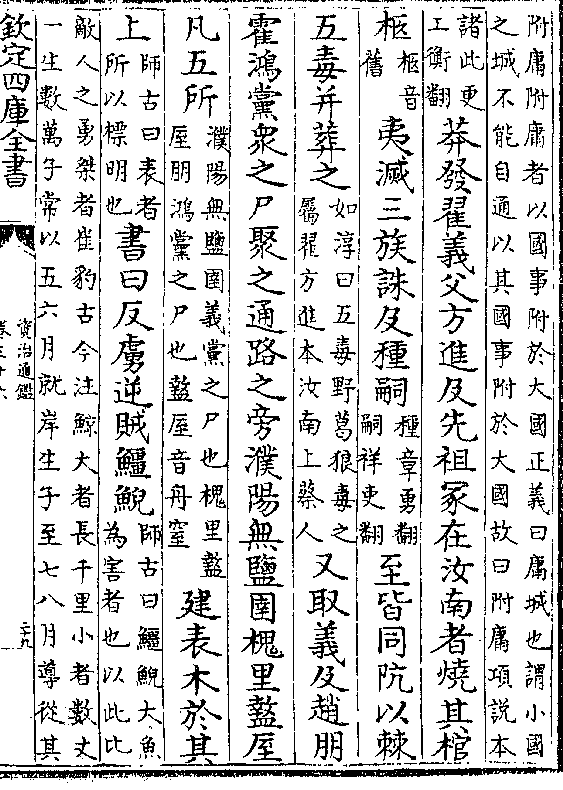 附庸附庸者以國事附於大國正義曰庸城也謂小國
之城不能自通以其國事附於大國故曰附庸項說本
諸此更
工衡翻
莽發翟義父方進及先祖冢在汝南者燒其棺
柩
柩音
舊
夷滅三族誅及種嗣
種章勇翻
嗣祥吏翻
至皆同阬以棘
五毒并葬之
如淳曰五毒野葛狼毒之
屬翟方進本汝南上蔡人
又取義及趙朋
霍鴻黨衆之尸聚之通路之旁濮陽無鹽圉槐里盩厔
凡五所
濮陽無鹽圉義黨之尸也槐里盩
厔朋鴻黨之尸也盩厔音舟窒
建表木於其
上
師古曰表者
所以標明也
書曰反虜逆賊鱷鯢
師古曰鱷鯢大魚
為害者也以此比
敵人之勇桀者崔豹古今注鯨大者長千里小者數丈
一生數萬子常以五六月就岸生子至七八月導從其
欽定四庫全書
資治通鑑
卷三十六